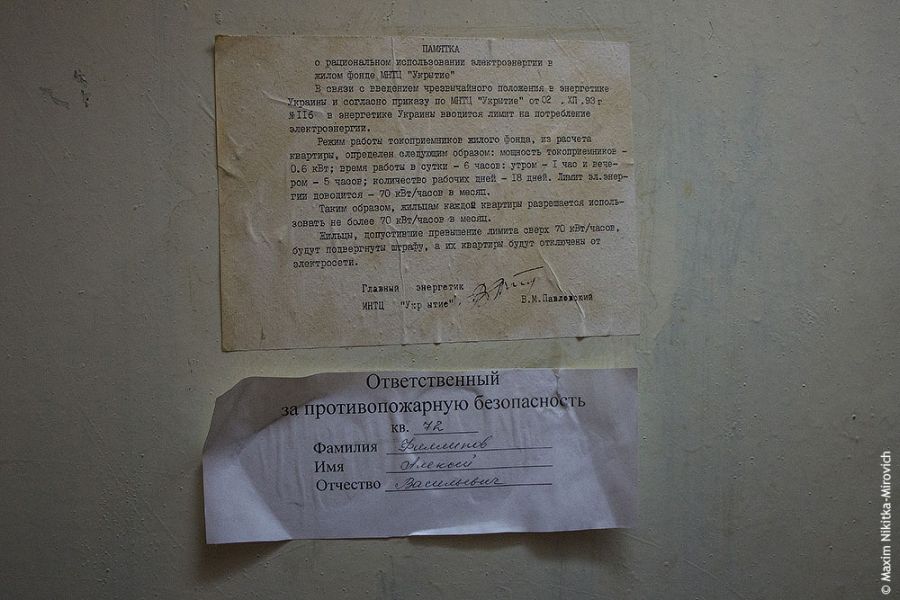 ПАМЯТКА
о рациональном использовании электроэнергии в
жилом фонде МНТЦ "Укрытие"
В связи с введением чрезвычайного положения в энергетике
Украины и согласно приказу по МНТЦ "Укрытие" от 02 . ХП .93 г
№ II6 в энергетике Украины вводится лимит на потребление
электроэнергии.
Режим работы токоприемников жилого фонда, из расчета
квартиры, определен следующим образом: мощность токоприемников -
0.6 кВт; время работы в сутки - 6 часов: утром - I час и вече-
ром - 5 часов; количество рабочих дней - 18 дней. Лимит эл.энер-
гии доводится - 70 кВт/часов в месяц.
Таким образом, жильцам каждой квартиры разрешается исполь-
зовать не более 70 кВт/часов в месяц.
Жильцы, допустившие превышение лимита сверх 70 кВт/часов,
будут подвергнуты штрафу, а их квартиры будут отключены от
электросети.
Главный энергетик
МНТЦ "Укрытие"
В.М.Павловский
Ответственный
за противопожарную безопасность
кв. 72
Фамилия Филлипов
Имя Алексей
Отчество Васильевич
© Maxim Nikitka-Mirovich